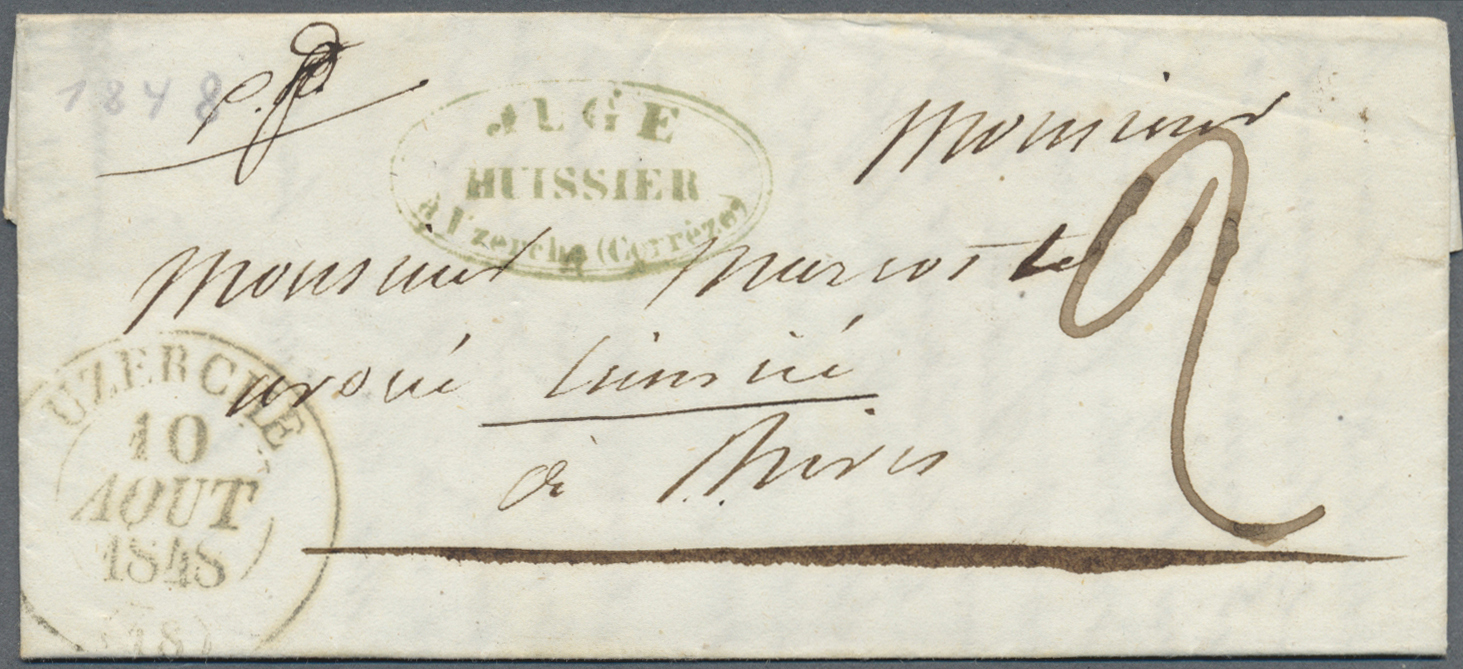 1848
P.P.
AUGE
HUISSIER
à Uzerche (Corrèze)
Monsieur
Monsieur
avoué licencié
à
2
UZERCHE
10
AOUT
1848
(18)